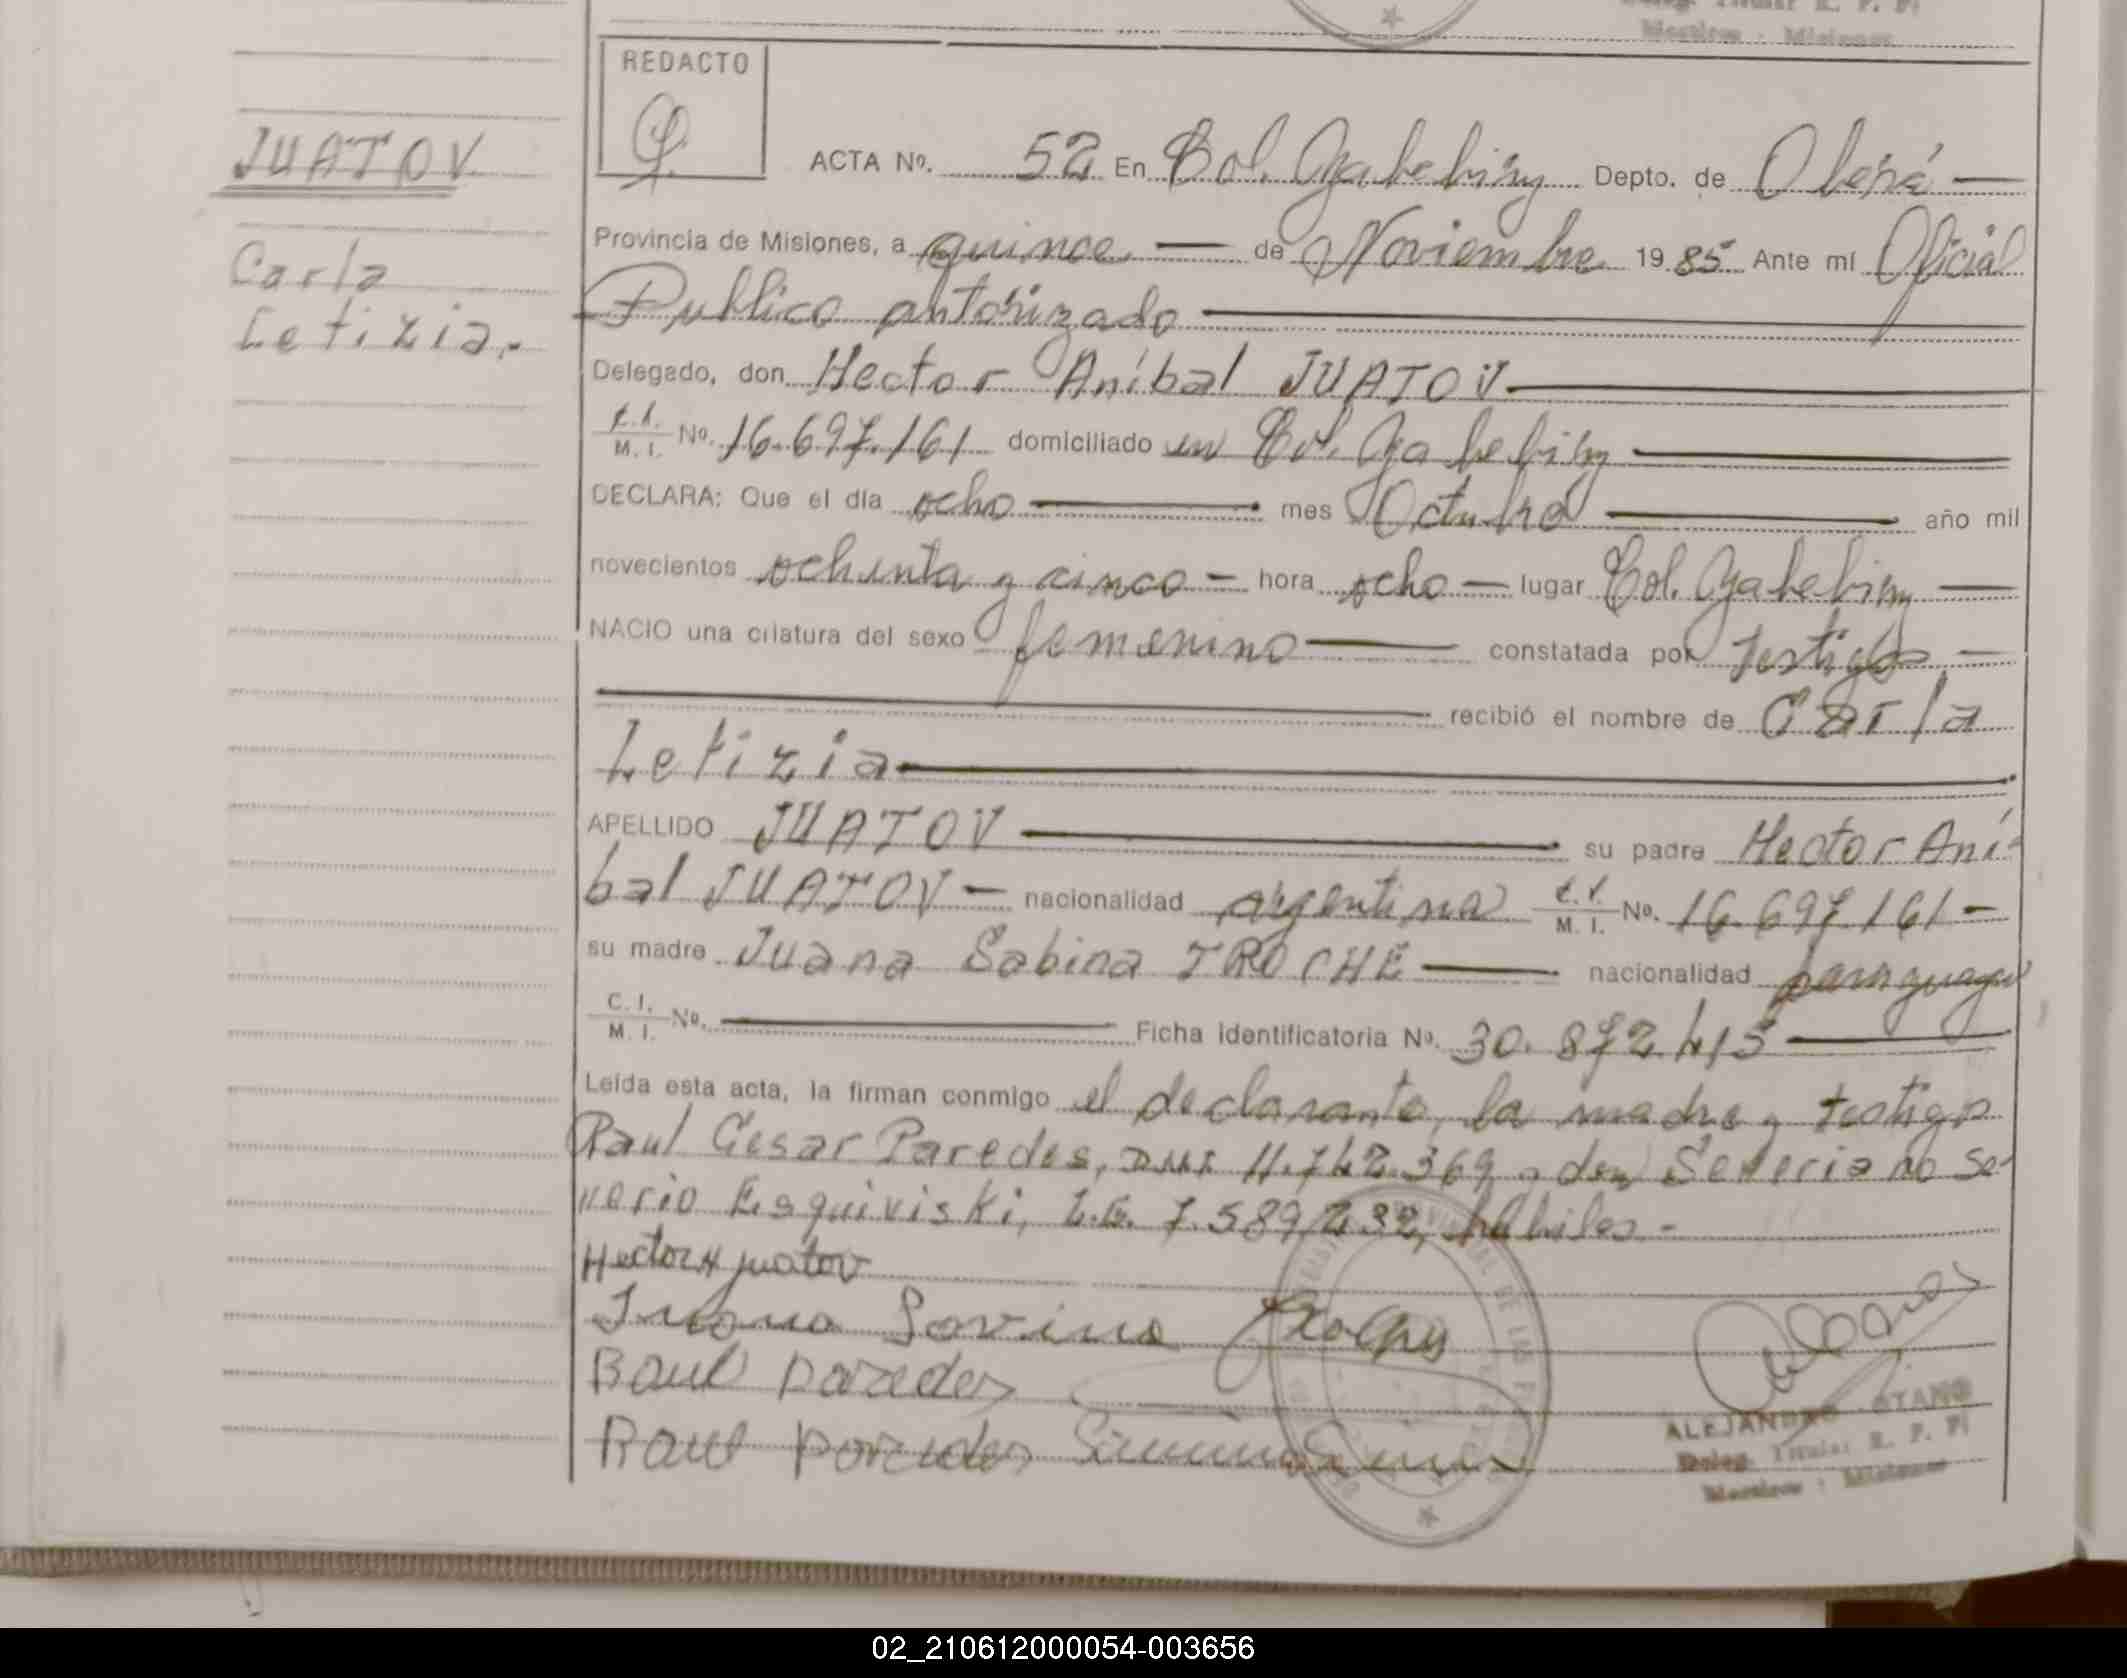 Deleg. Titular R. P. P.
Mártires - Misiones
REDACTO
ACTA Nº. 52 En Col. Yabebiry Depto. de Oberá
JUATOV
Provincia de Misiones, a quince de Noviembre 1985 Ante mí Oficial
Carla
Publico autorizado
Letizia.
Delegado, don Hector Aníbal JUATOV
C.I. M.I. Nº. 16.697.161 domiciliado en Col. Yabebiry
DECLARA: Que el día ocho mes Octubre año mil
novecientos ochenta y cinco hora ocho lugar Col. Yabebiry
NACIO una criatura del sexo femenino constatada por testigos
recibió el nombre de Carla
Letizia
APELLIDO JUATOV su padre Hector Aní-
bal JUATOV nacionalidad argentina C.I. M.I. Nº. 16.697.161
su madre Juana Sabina TROCHE nacionalidad paraguaya
C.I. M.I. Nº. Ficha identificatoria Nº. 30.872.415
Leída esta acta, la firman conmigo el declarante, la madre y testigos
Raul Cesar Paredes, DNI 11.742.369 y don Severiano Se-
verio Esquiviski, L.E. 7.589.232, hábiles.-
Hector A Juatov
Juana Savina
Raul paredes
Raul paredes
ALEJANDRO OTAÑO
Deleg. Titular R. P. P.
Mártires - Misiones
02_210612000054-003656